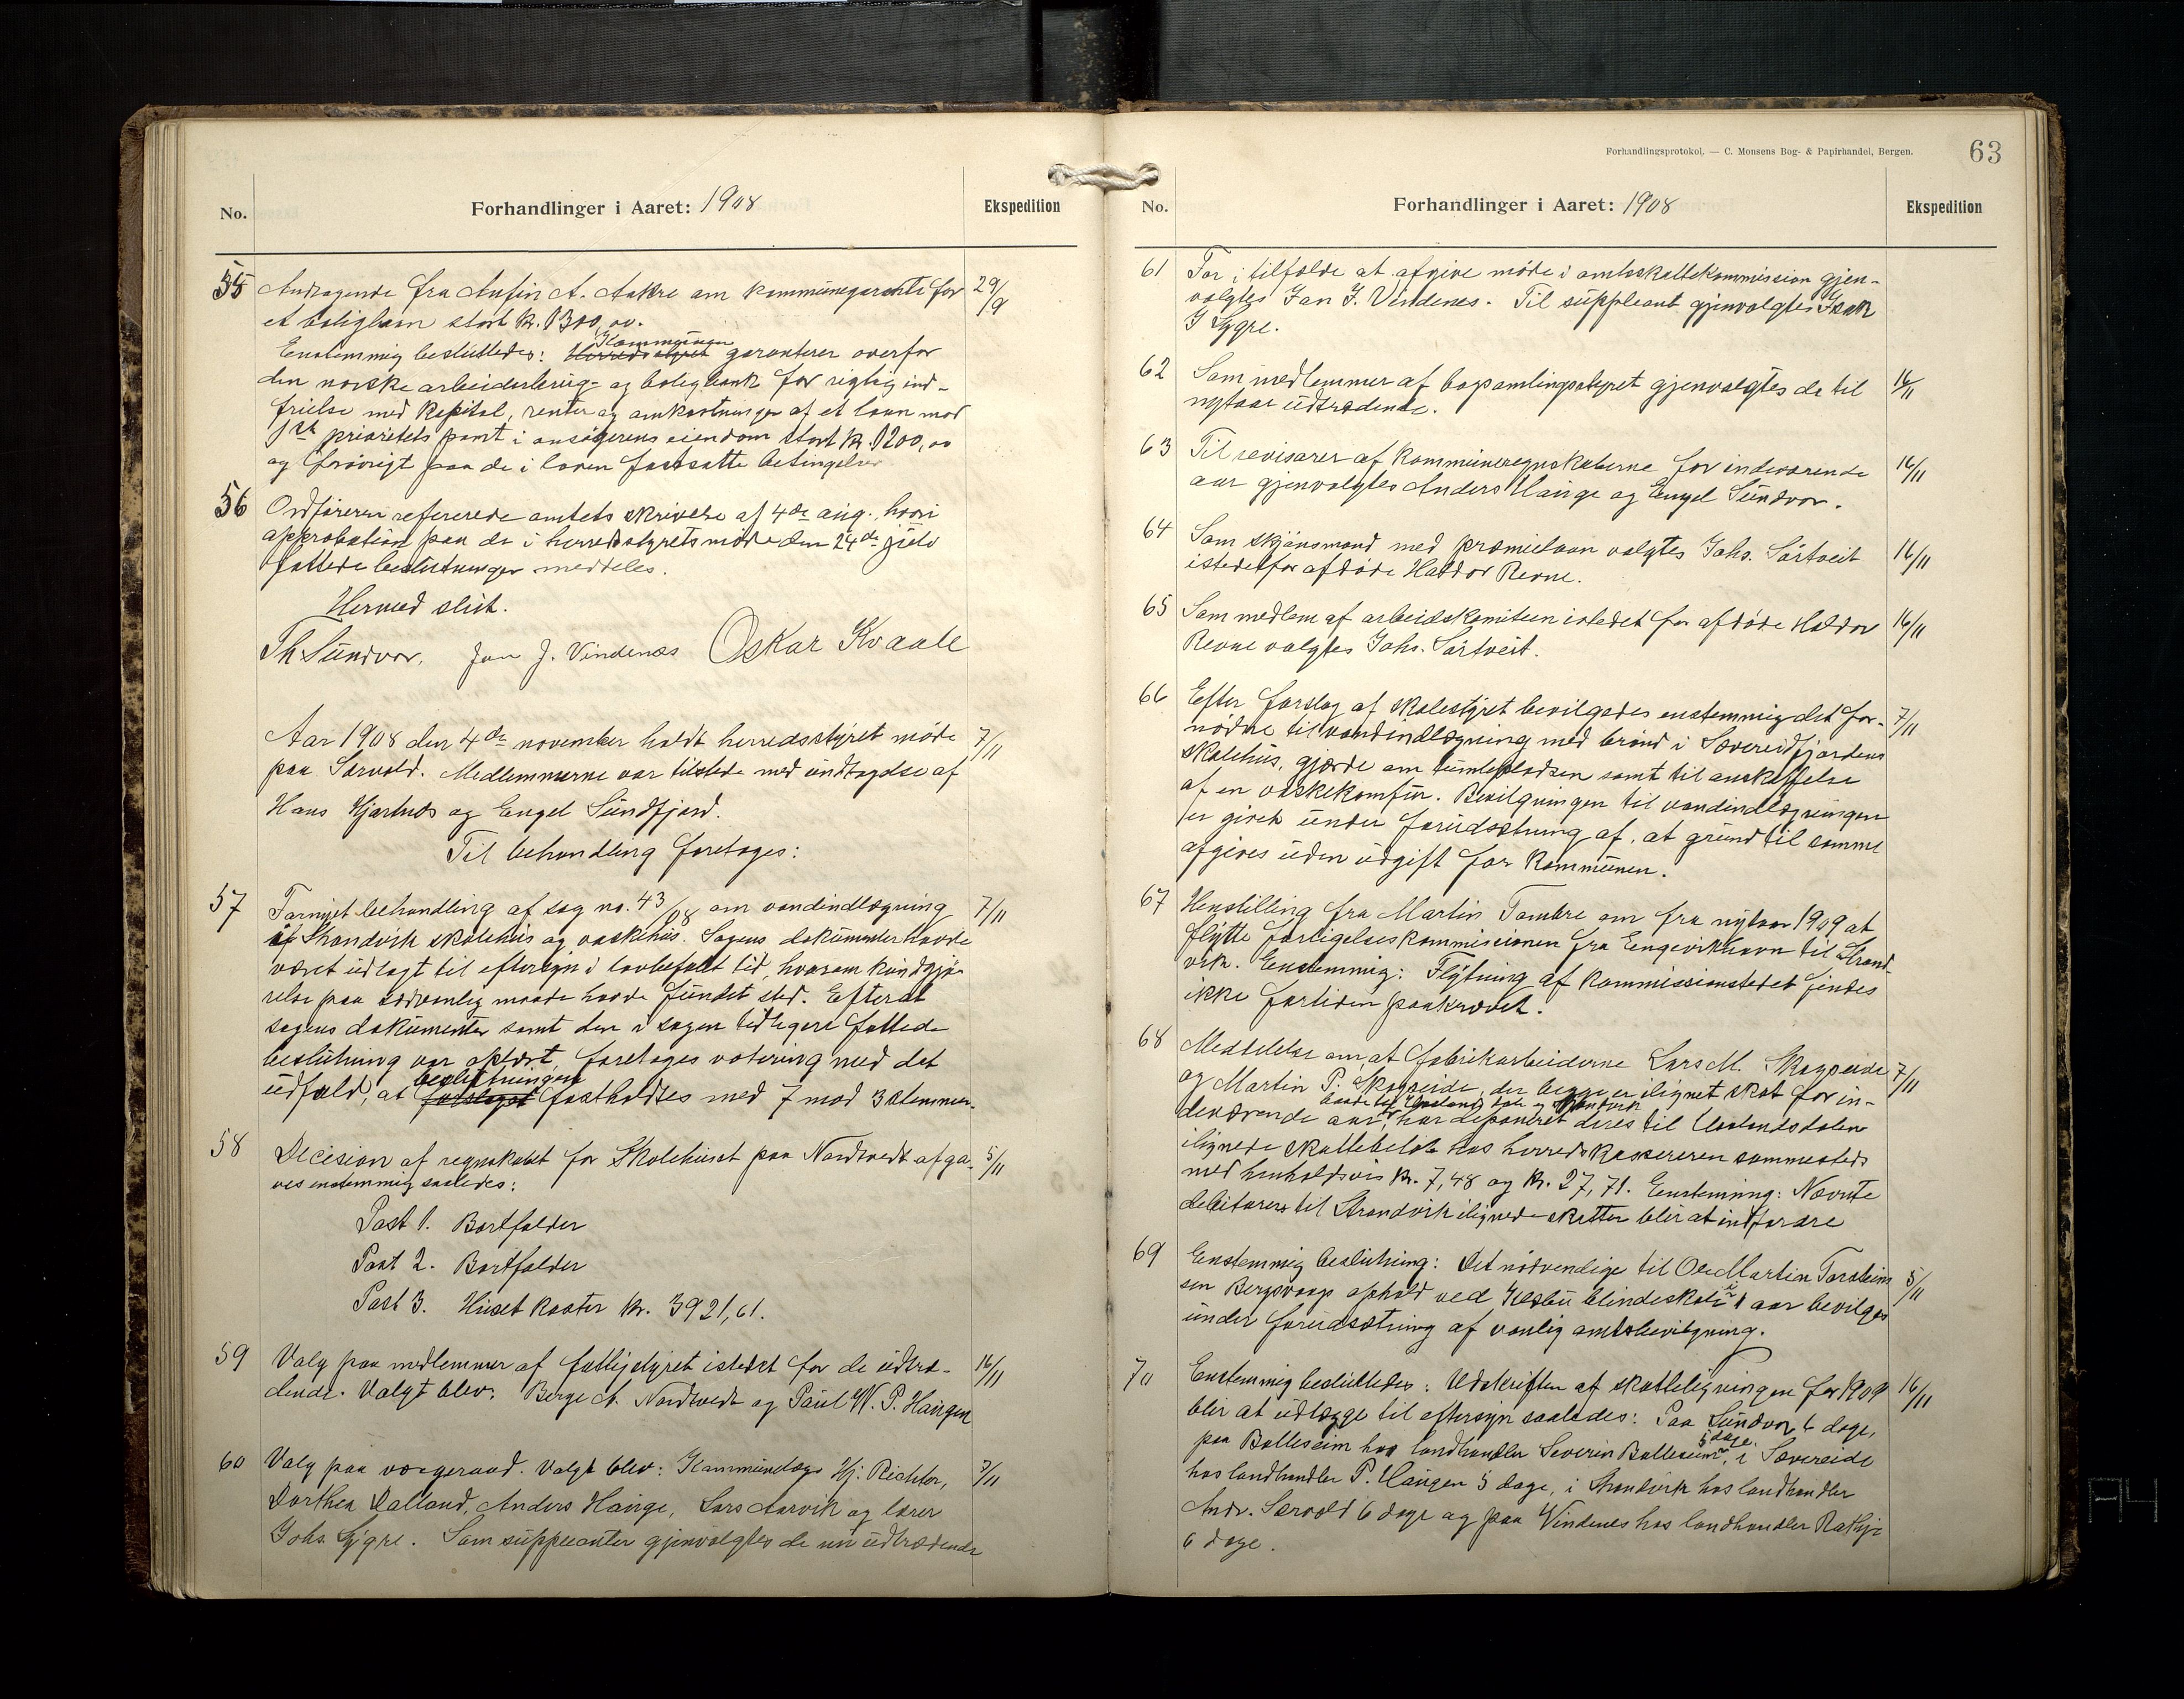 Forhandlingsprotokol. — C. Monsens Bog- & Papirhandel, Bergen.
63
No.
Forhandlinger i Aaret: 1908
Ekspedition
55 Andragende fra Anfin A. Aakre om kommunegaranti for 29/9
et boliglaan stort kr. 1300,00.
Kommunen
Enstemmig besluttedes: Herredsstyret garanterer overfor
den norske arbeiderbrug- og boligbank for rigtig ind-
frielse med kapital, renter og omkostninger af et laan mod
1ste prioritets pant i ansøgerens eiendom stort kr. 1200,00
og forøvrigt paa de i loven fastsatte betingelser
56 Ordføreren refererede amtets skrivelse af 4de aug., hvori
approbation paa de i herredsstyrets møde den 24de juli
fattede beslutninger meddeles.
Hermed slut.
Th Sundvor. Jan J. Vindenes Oskar Kvaale
Aar 1908 den 4de november holdt herredsstyret møde 7/11
paa Særvold. Medlemmerne var tilstede med undtagelse af
Hans Hjartnes og Engel Sundfjord.
Til behandling foretoges:
57 Fornyet behandling af sag no. 43/08 om vandindlægning 7/11
af Strandvik skolehus og vaskehus. Sagens dokumenter havde
været udlagt til eftersyn i lovbefalt tid, hvorom kundgjø-
relse paa sedvanlig maade havde fundet sted. Efterat
sagens dokumenter samt den i sagen tidligere fattede
beslutning var oplæst, foretoges votering med det
beslutningen
udfald, at forslaget fastholdtes med 7 mod 3 stemmer.
58 Decision af regnskabet for Skolehuset paa Nordtvedt afga- 5/11
ves enstemmig saaledes:
Post 1. Bortfalder
Post 2. Bortfalder
Post 3. Huset koster kr. 3921,61.
59 Valg paa medlemmer af fattigstyret istedet for de udtræ- 16/11
dende. Valgt blev: Berge A. Nordtvedt og Paul W. P. Haugen
60 Valg paa værgeraad. Valgt blev: Kommunelæge Hj. Richter, 7/11
Dorthea Dalland, Anders Hauge, Lars Aarvik og lærer
Johs. Lygre. Som suppleanter gjenvalgtes de nu udtrædende
No.
Forhandlinger i Aaret: 1908
Ekspedition
61 For i tilfælde at afgive møde i amtsskattekommission gjen-
valgtes Jan J. Vindenes. Til suppleant gjenvalgtes Isak
J Lygre.
62 Som medlemmer af bogsamlingsstyret gjenvalgtes de til 16/11
nytaar udtrædende.
63 Til revisorer af kommuneregnskaberne for indeværende 16/11
aar gjenvalgtes Anders Hauge og Engel Sundvor.
64 Som skjønsmand med præmielaan valgtes Johs. Sørtveit 16/11
istedetfor afdøde Haldor Revne.
65 Som medlem af arbeidskomiteen istedet for afdøde Haldor 16/11
Revne valgtes Johs. Sørtveit.
66 Efter forslag af skolestyret bevilgedes enstemmig det for- 7/11
nødne til vandindlægning med brønd i Sævereidfjordens
skolehus, gjærde om tumlepladsen samt til anskaffelse
af en vaskekomfur. Bevilgningen til vandindlægningen
er givet under forudsætning af, at grund til samme
afgives uden udgift for kommunen.
67 Henstilling fra Martin Tombre om fra nytaar 1909 at
flytte forligelseskommissionen fra Engevikhavn til Strand-
vik. Enstemmig: Flytning af kommissionstedet findes
ikke fortiden paakrævet.
68 Meddelelse om, at fabrikarbeiderne Lars M. Skogseide 7/11
og Martin P. Skogseide, der begge er ilignet skat for in-
baade til Uselands dale og Strandvik
deværende aar, har deponeret deres til Uselandsdalen
ilignede skattebeløb hos herredskassereren sammesteds
med henholdsvis kr. 7,48 og kr. 27,71. Enstemmig: Nævnte
debitorers til Strandvik ilignede skatter blir at indfordre
69 Enstemmig beslutning: Det nødvendige til Ole Martin Torstein 5/11
sen Bergsvaag ophold ved blindeskole i 1 aar bevilges
under forudsætning af vanlig amtsbevilgning.
70 Enstemmig besluttedes: Udskriften af skatteligningen for 1909 16/11
blir at udlægge til eftersyn saaledes: Paa Sundvor 6 dage,
5 dage
paa Bolleseim hos landhandler Severin Bolleseim, i Sævereide
hos landhandler P. Haugen 5 dage, i Strandvik hos landhandler
Andr. Særvold 6 dage og paa Vindenes hos landhandler Rathje
6 dage.